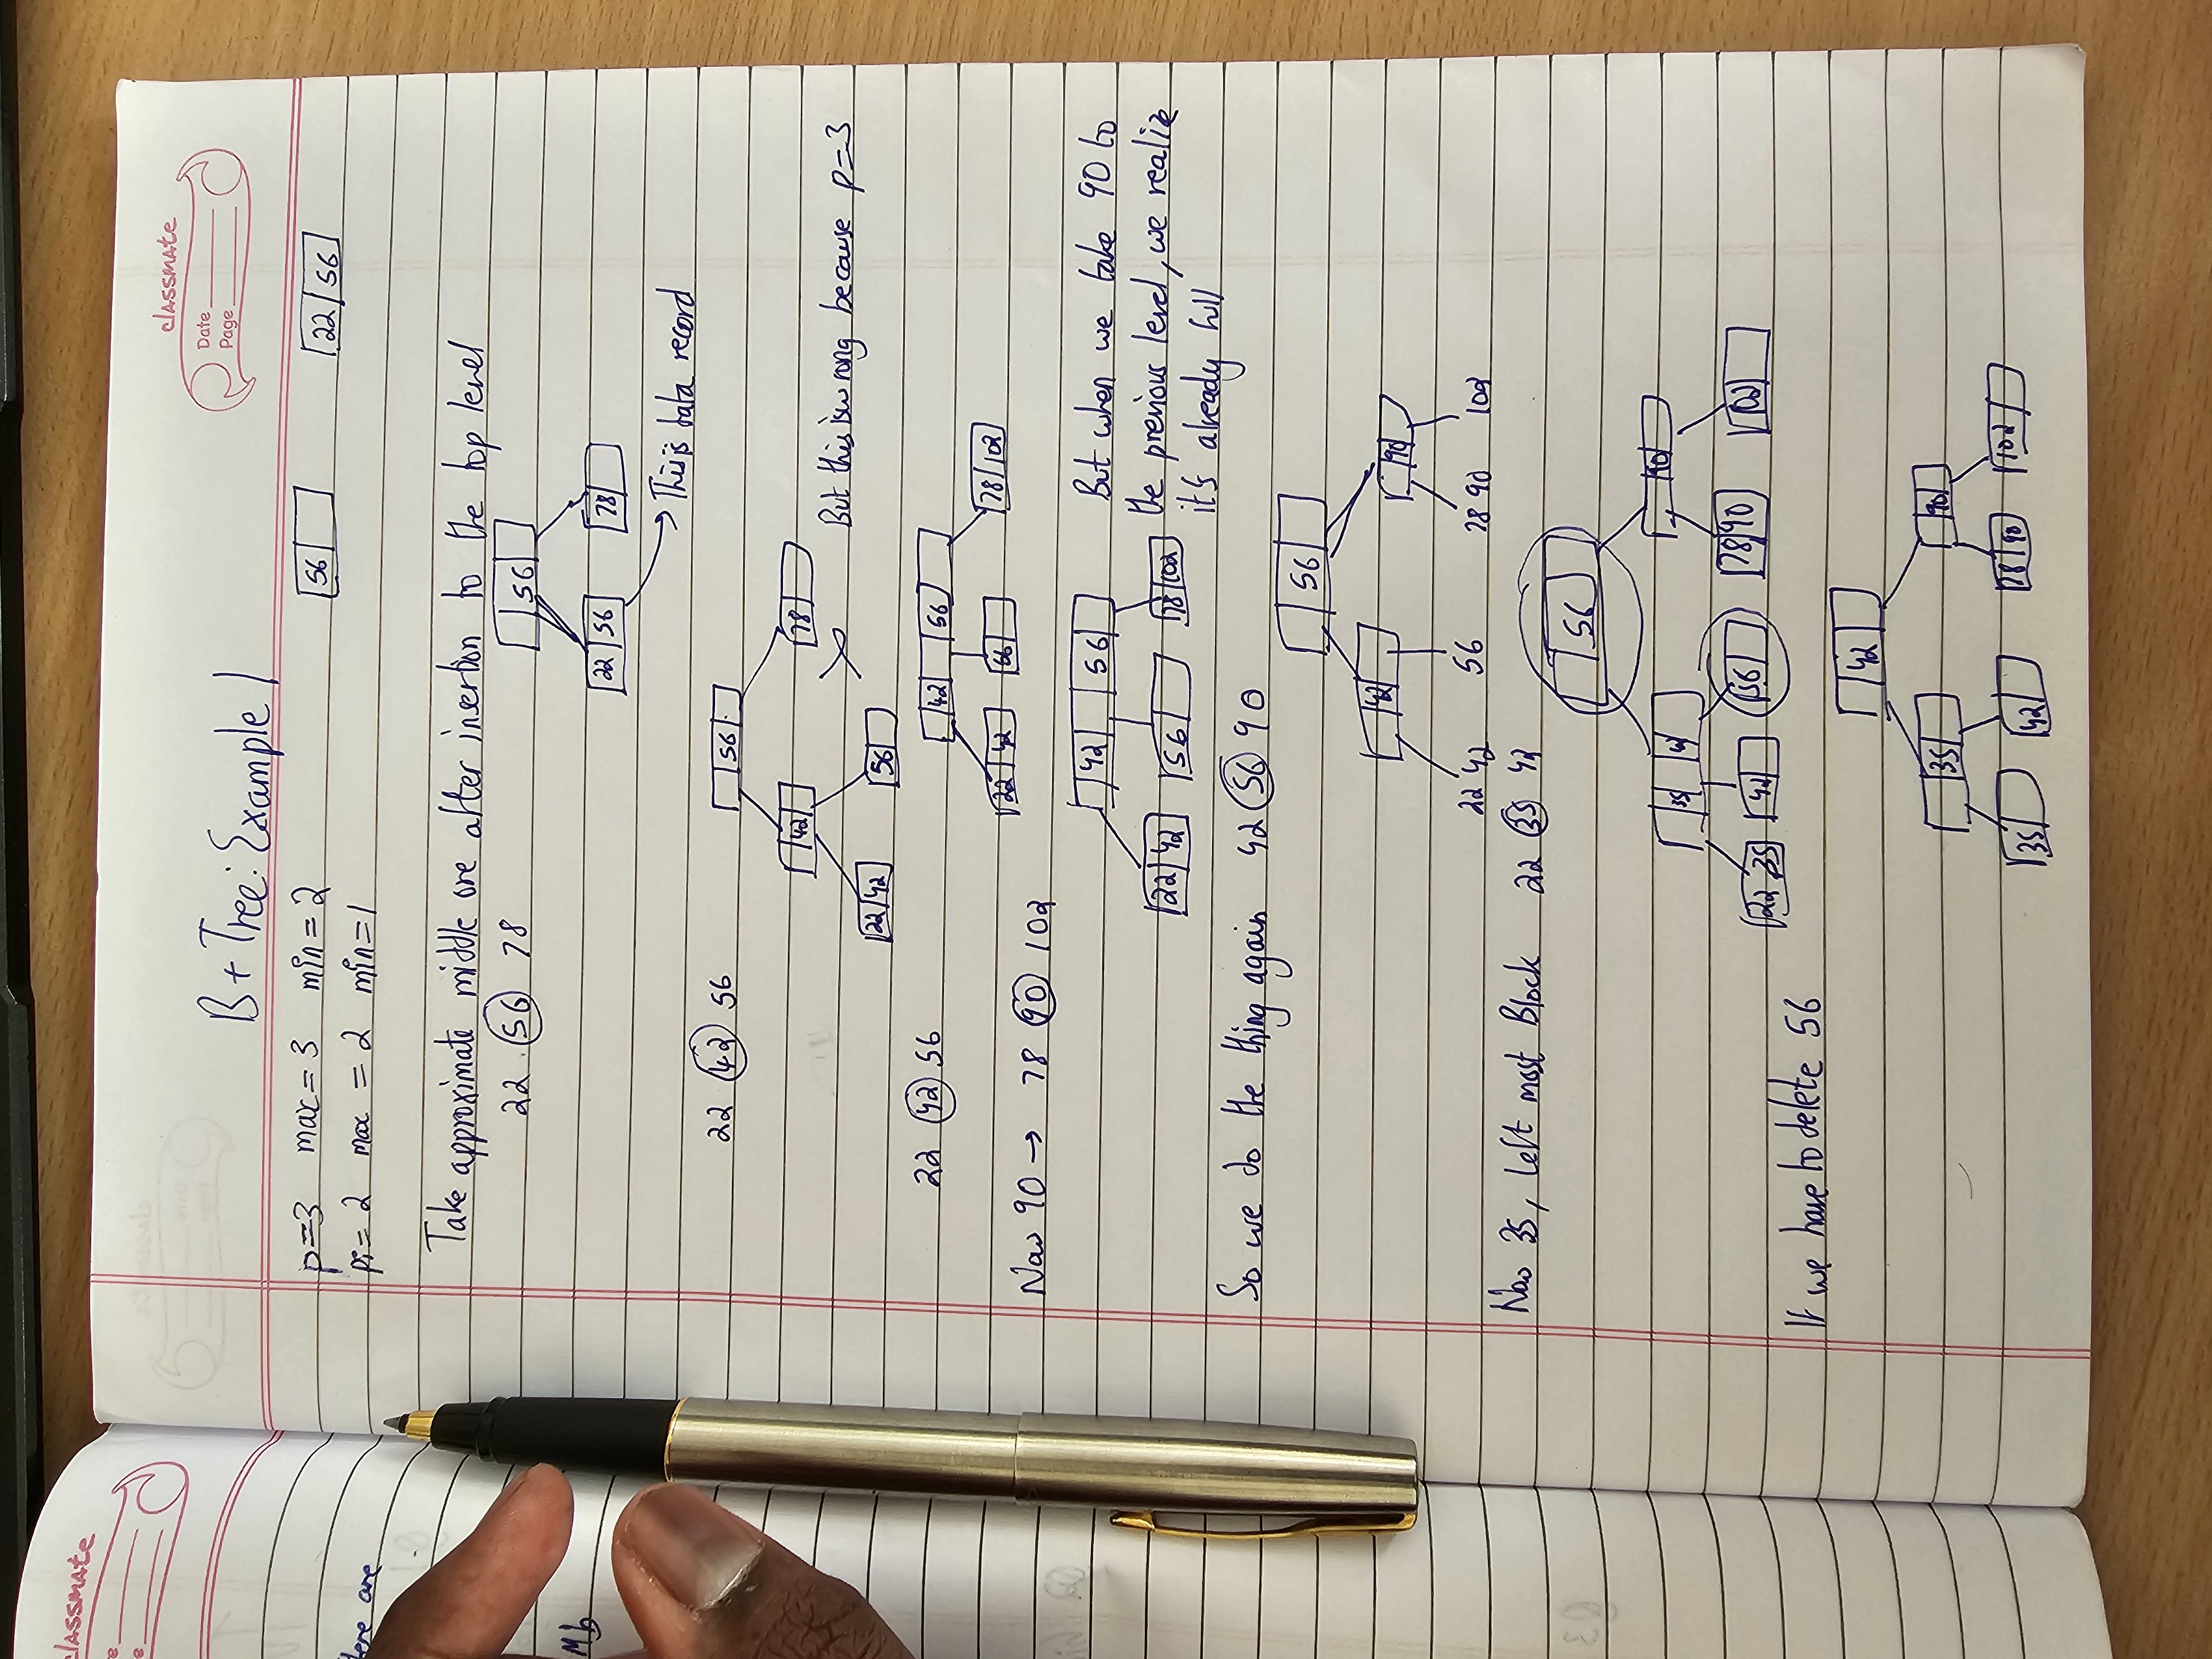 classmate
ere are
Mb
classmate
Date
Page
B + Tree: Example 1
p=3 max = 3 min = 2
56
22 56
pi = 2 max = 2 min = 1
Take approximate middle one after insertion to the top level
22 56 78
56
22 56 78
This is data record
22 42 56
56
42 78
But this is wrong because p=3
22 42 56
22 42 56
42 56
22 42 56 78 102
Now 90 → 78 90 102
42 56
22 42 56 78 102
But when we take 90 to
the previous level, we realize
it's already full
So we do the thing again 42 56 90
56
42 90
22 42 56 78 90 102
Now 35, Left most Block 22 35 42
56
35 42 90
22 35 42 56 78 90 102
If we have to delete 56
42
35 90
35 42 78 90 102